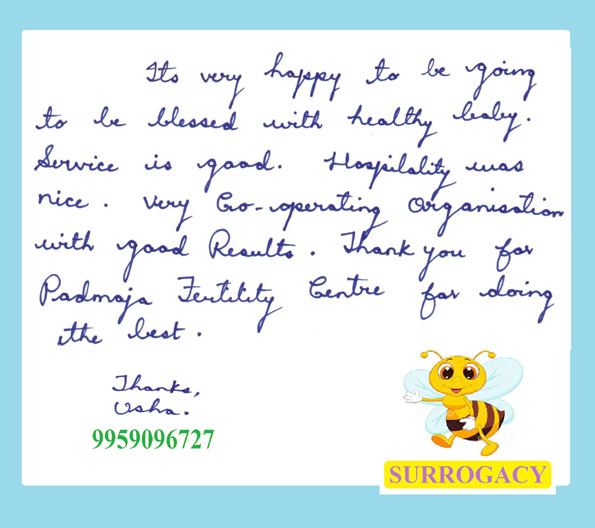 Its very happy to be going
to be blessed with healthy baby.
Service is good. Hospitality was
nice. Very Co-operating Organisation
with good Results. Thank you for
Padmaja Fertility Centre for doing
the best.
Thanks,
Usha.
9959096727
SURROGACY